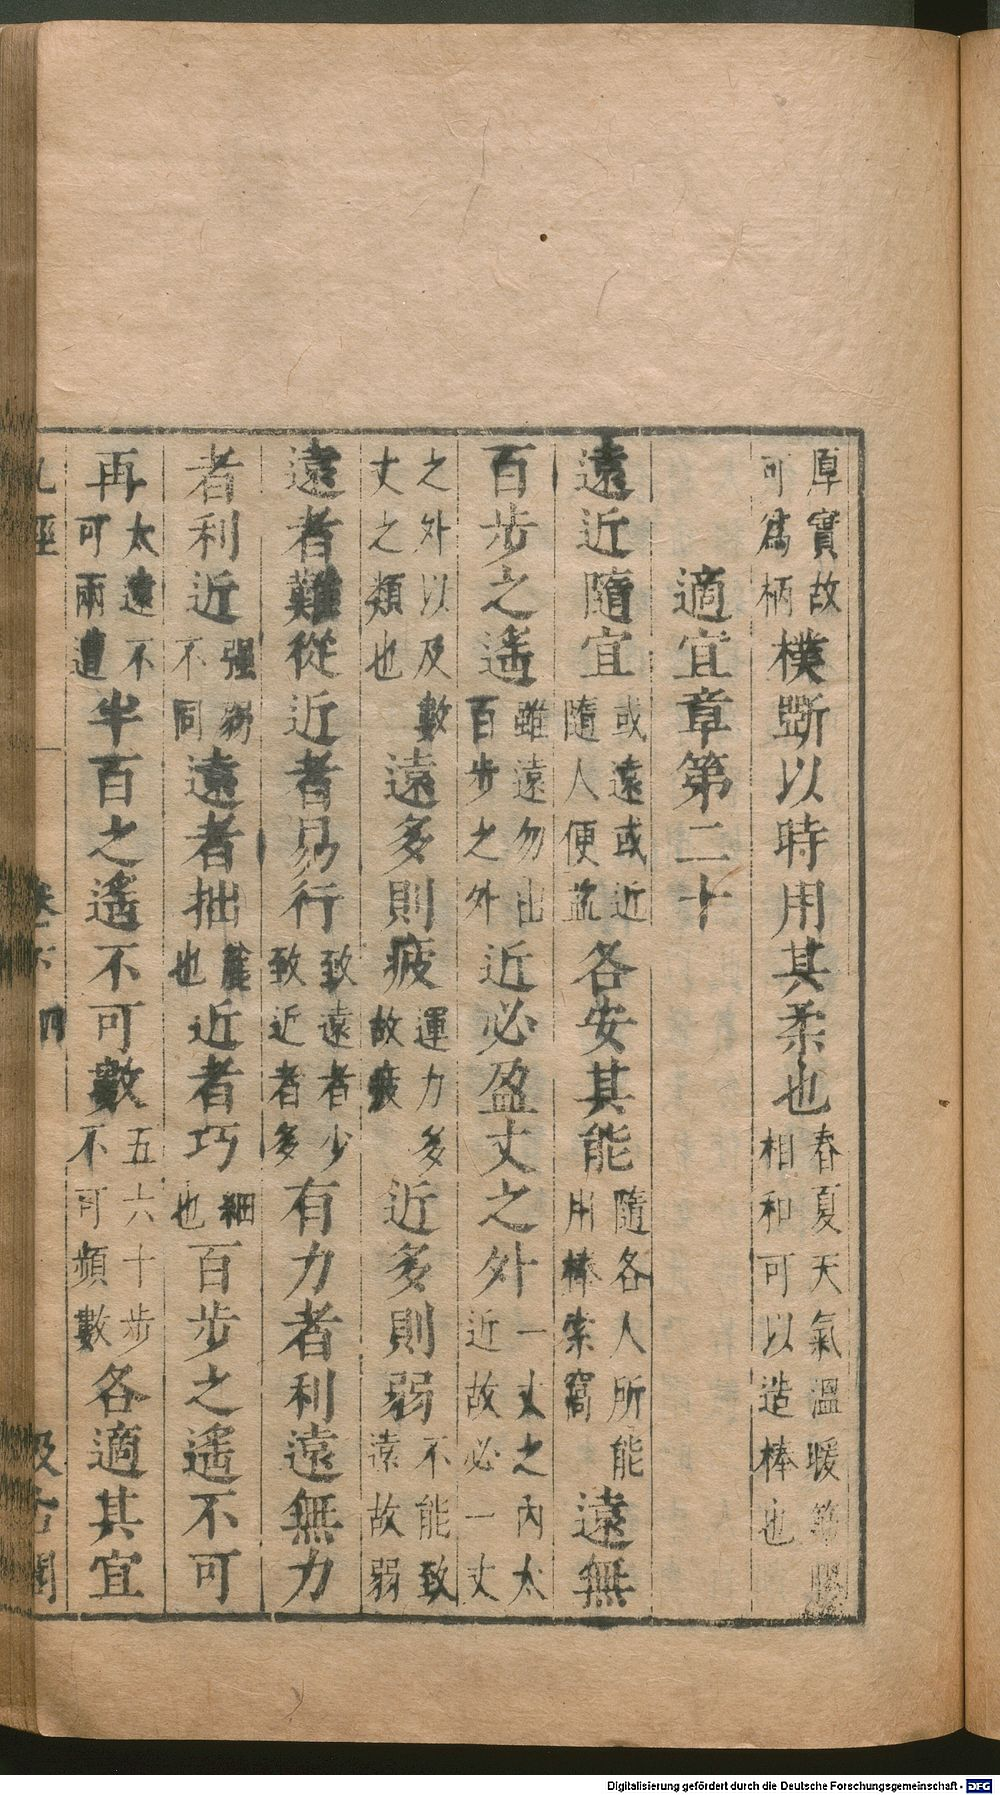 厚實故
可爲柄
樸斲以時用其柔也
春夏天氣溫暖筋膠
相和可以造棒也
適宜章第二十
遠近隨宜
或遠或近
隨人便益
各安其能
隨各人所能
用棒索窩
遠無
百步之遙
雖遠勿出
百步之外
近必盈丈之外
一丈之內太
近故必一丈
之外以及數
丈之類也
遠多則疲
運力多
故疲
近多則弱
不能致
遠故弱
遠者難從近者易行
致遠者少
致近者多
有力者利遠無力
者利近
强弱
不同
遠者拙
麄
也
近者巧
細
也
百步之遙不可
再
太遠不
可兩遭
半百之遙不可數
五六十步
不可頻數
各適其宜
丸經
卷下 四
汲古閣
Digitalisierung gefördert durch die Deutsche Forschungsgemeinschaft - DFG